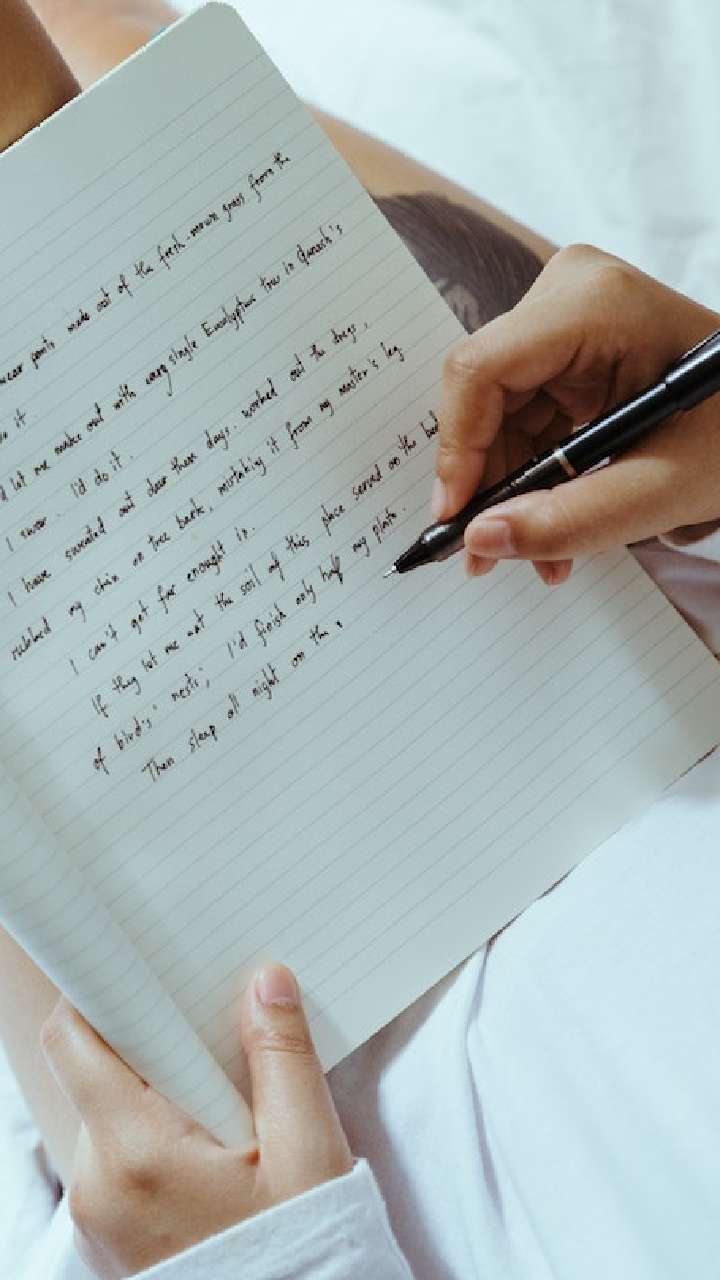 wear pants made out of the fresh grass from the
do it.
let me make out with every single Eucalyptus tree in
I swear. I'd do it.
I have sweated out deer these days. worked out the days,
rubbed my chin on tree bark, mistaking it from my master's leg
I can't get far enought in.
If they let me eat the soil of this place served on the
of bird's' nests; I'd finish only half my plate.
Then sleap all night on the